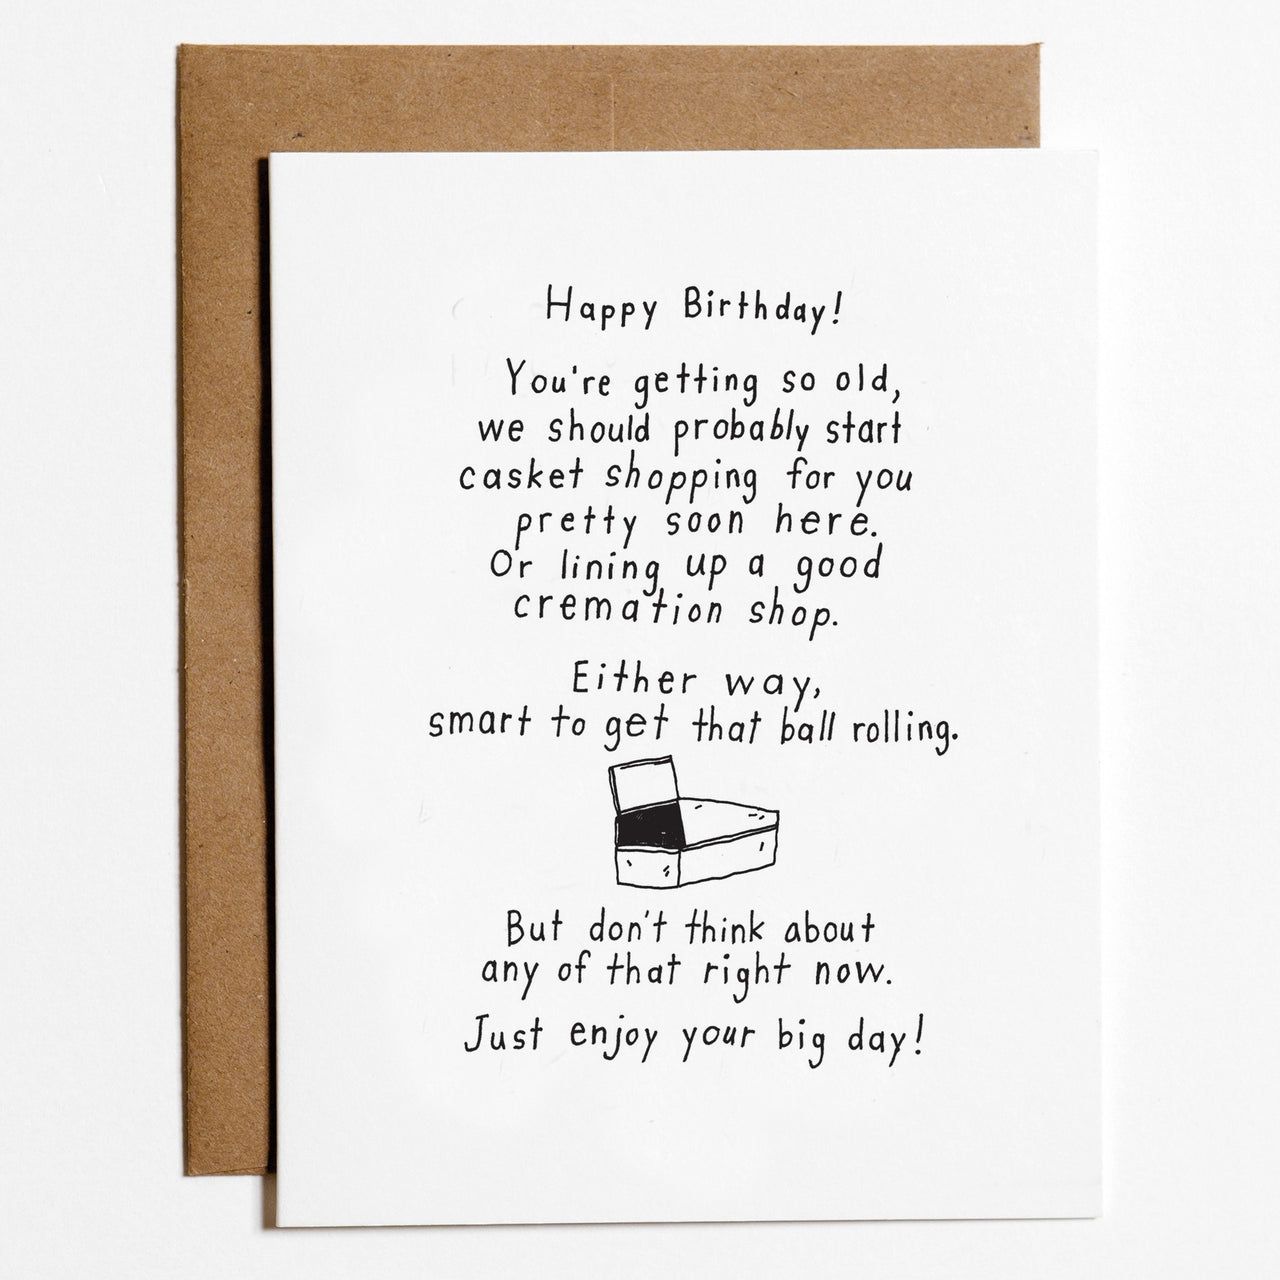 Happy Birthday!
You're getting so old,
we should probably start
casket shopping for you
pretty soon here.
Or lining up a good
cremation shop.
Either way,
smart to get that ball rolling.
But don't think about
any of that right now.
Just enjoy your big day!